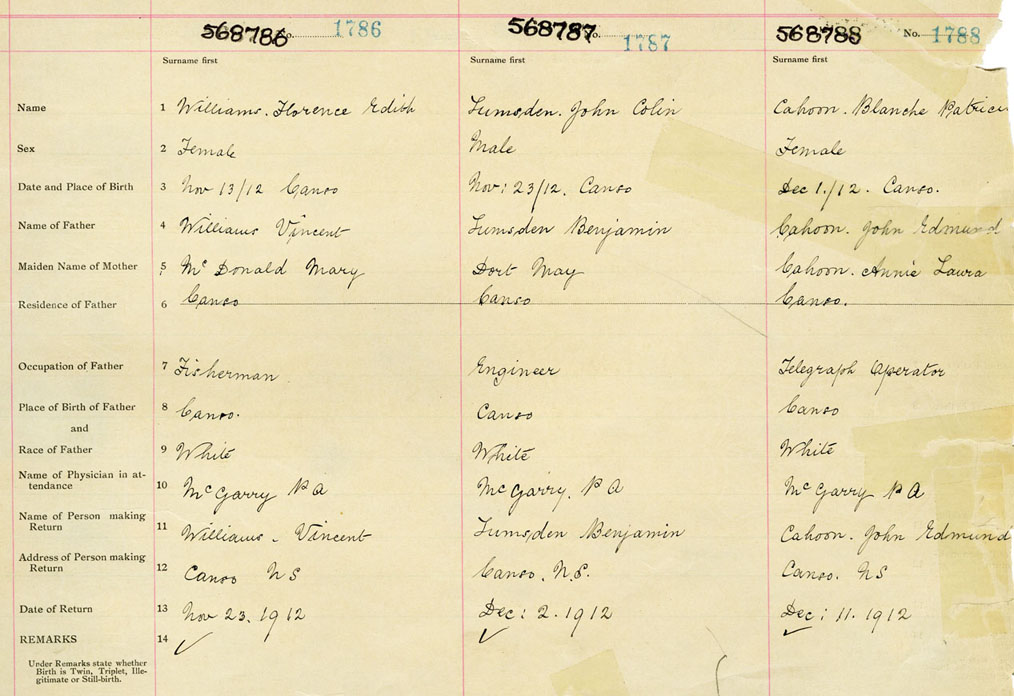 568786 No. 1786 568787 No. 1787 568788 No. 1788
Surname first Surname first Surname first
Name 1 Williams. Florence Edith Lumsden. John Colin Cahoon. Blanche Patricia
Sex 2 Female Male Female
Date and Place of Birth 3 Nov 13/12 Canso Nov: 23/12. Canso Dec 1./12. Canso.
Name of Father 4 Williams Vincent Lumsden Benjamin Cahoon. John Edmund
Maiden Name of Mother 5 Mc Donald Mary Dort May Cahoon. Annie Laura
Residence of Father 6 Canso Canso Canso.
Occupation of Father 7 Fisherman Engineer Telegraph Operator
Place of Birth of Father 8 Canso. Canso Canso
and
Race of Father 9 White White White
Name of Physician in at-
tendance 10 McGarry P A McGarry. P A McGarry P A
Name of Person making
Return 11 Williams - Vincent Lumsden Benjamin Cahoon. John Edmund
Address of Person making
Return 12 Canso NS Canso. N.S. Canso. NS
Date of Return 13 Nov 23. 1912 Dec: 2. 1912 Dec: 11. 1912
REMARKS 14 ✓ ✓ ✓
Under Remarks state whether
Birth is Twin, Triplet, Ille-
gitimate or Still-birth.